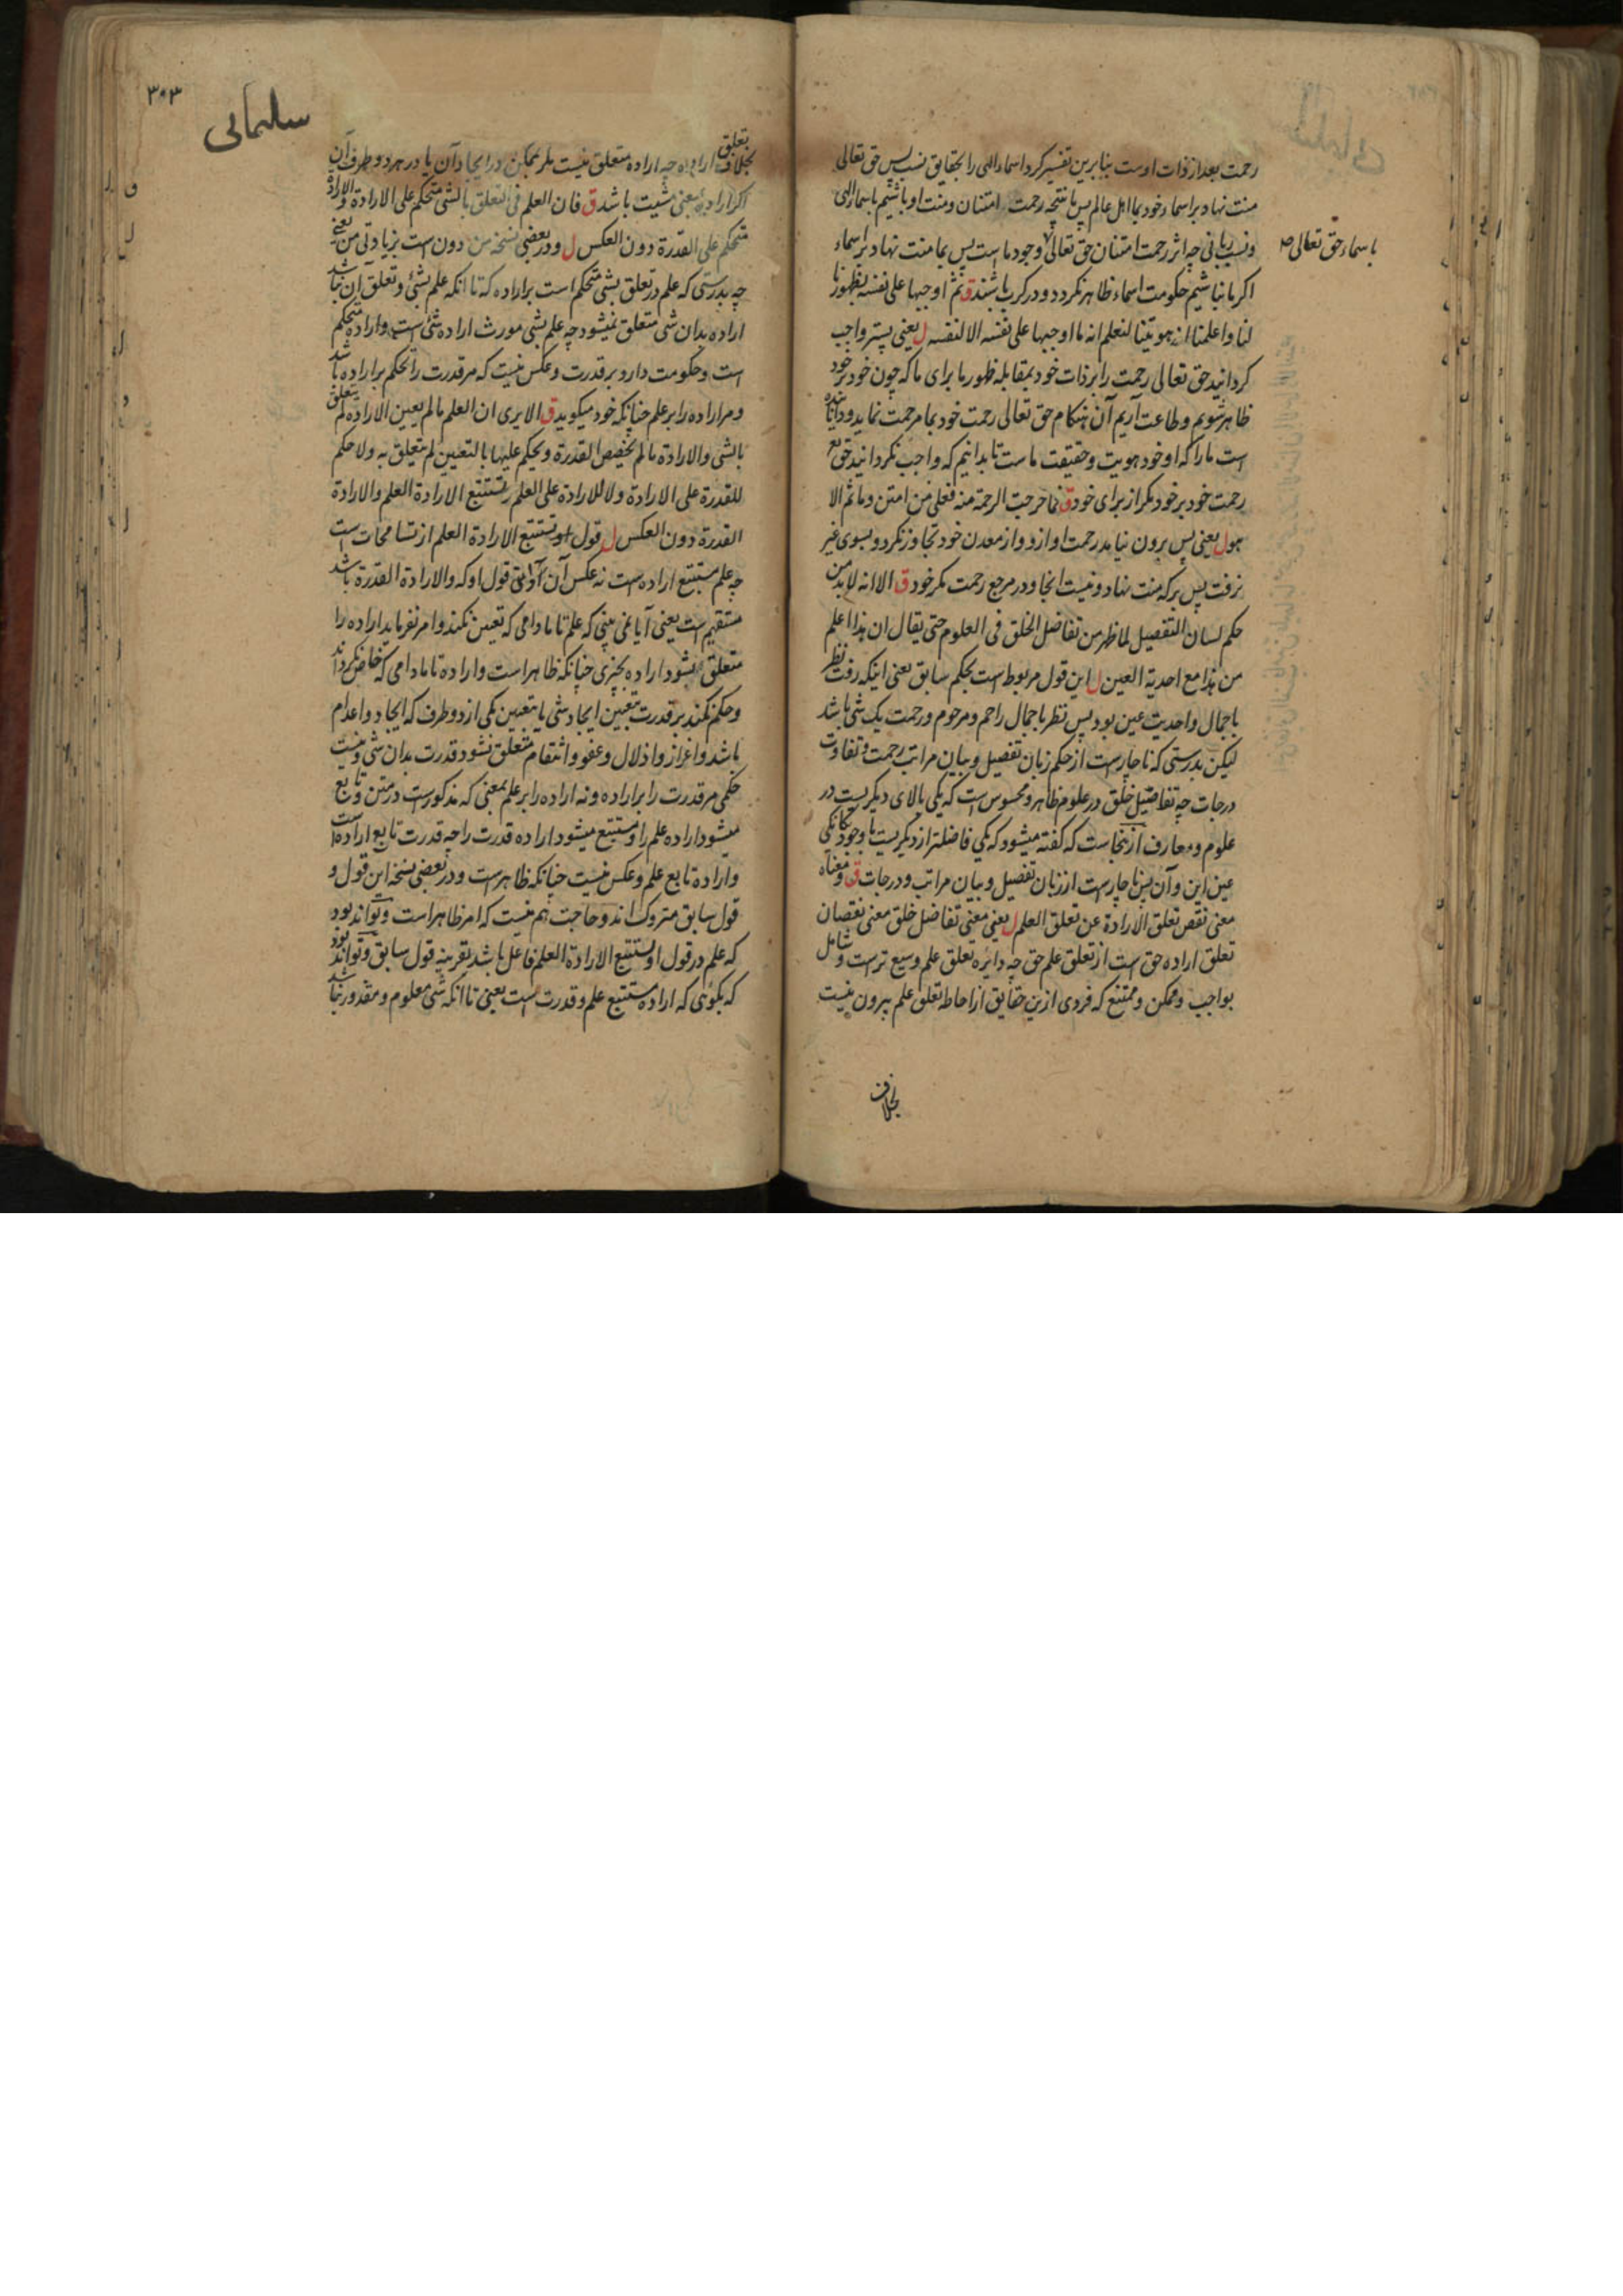 رحمت بعد از ذات اوست بنابرین تفسیر کرد اسماء الهی را بحقایق نسب پس حق تعالی
منت نهاد بر اسماء خود بما اهل عالم پس ما نتیجه رحمت امتنان و منت او باشیم باسماء الهی
و نسب ربانی چه اثر رحمت امتنان حق تعالی وجود ما است پس بما منت نهاد بر اسماء
باسماء حق تعالی
اکر ما نباشیم حکومت اسماء ظاهر نکردد و در کرب باشند ق ثم اوجبها علی نفسه بظهورنا
لنا و اعلمنا انه هویتنا لنعلم انه ما اوجبها علی نفسه الا لنفسه ل یعنی پستر واجب
کردانید حق تعالی رحمت را بر ذات خود بمقابله ظهور ما برای ما که چون خود بر خود
ظاهر شویم و طاعت آریم آن هنکام حق تعالی رحمت خود بما مرحمت نماید و دانا
است ما را که او خود هویت و حقیقت ماست تا بدانیم که واجب نکردانید حق
رحمت خود بر خود مکر از برای خود ق فما خرجت الرحمة منه فعلی من امتن و ما ثم الا
هو ل یعنی پس برون نیاید رحمت او ازو و از معدن خود تجاوز نکرد و بسوی غیر
نرفت پس بر که منت نهاد و نیست انجا و در مرجع رحمت مکر خود ق الا انه لابد من
حکم لسان التفصیل لما ظهر من تفاضل الخلق فی العلوم حتی یقال ان هذا اعلم
من هذا مع احدیة العین ل این قول مربوط است بحکم سابق یعنی اینکه رفت نظر
باجمال و احدیت عین بود پس نظر باجمال راحم و مرحوم و رحمت یک شی باشد
لیکن بدرستی که ناچارست از حکم زبان تفصیل و بیان مراتب رحمت و تفاوت
درجات چه تفاضل خلق در علوم ظاهر و محسوس است که یکی بالای دیکریست در
علوم و معارف ازینجاست که کفته میشود که یکی فاضلتر از دیکریست با وجود یکانکی
عین این و آن پس ناچارست از زبان تفصیل و بیان مراتب و درجات ق و معناه
معنی نقص تعلق الارادة عن تعلق العلم ل یعنی معنی تفاضل خلق معنی نقصان
تعلق اراده حق است از تعلق علم حق چه دائره تعلق علم وسیع ترست و شامل
بواجب و ممکن و ممتنع که فردی ازین حقایق از احاطه تعلق علم بیرون نیست
بخلاف
٣٠٣
سلیمانی
بخلاف تعلق اراده چه اراده متعلق نیست مکر بممکن در ایجاد آن یا در هر دو طرف آن
اکر اراده بمعنی مشیت باشد ق فان العلم فی التعلق بالشی متحکم علی الارادة و الارادة
متحکم علی القدرة دون العکس ل و در بعضی نسخه من دون است بزیادتی من یعنی
چه بدرستی که علم در تعلق بشی متحکم است بر اراده که تا انکه علم بشی و تعلق آن نباشد
اراده بدان شی متعلق نمیشود چه علم بشی مورث اراده شی است و اراده متحکم
است و حکومت دارد بر قدرت و عکس نیست که مر قدرت را تحکم بر اراده باشد
و مر اراده را بر علم چنانکه خود میکوید ق الا یری ان العلم ما لم یعین الارادة لم یتعلق
بالشی و الارادة ما لم تخصص القدرة و تحکم علیها بالتعیین لم تتعلق به و لا حکم
للقدرة علی الارادة و لا للارادة علی العلم فتستتبع الارادة العلم و الارادة
القدرة دون العکس ل قول او تستتبع الارادة العلم از تسامحات است
چه علم مستتبع اراده است نه عکس آن قول او که و الارادة القدرة باشد
مستقیم است یعنی آیا نمی بینی که علم تا مادامی که تعیین نکند و امر نفرماید اراده را
متعلق نشود اراده بچیزی چنانکه ظاهر است و اراده تا مادامی که خاص نکرداند
و حکم نکند بر قدرت بتعیین ایجاد شی یا بتعیین یکی از دو طرف که ایجاد و اعدام
باشد و اعزاز و اذلال و عفو و انتقام متعلق نشود قدرت بدان شی و نیست
حکمی مر قدرت را بر اراده و نه اراده را بر علم بمعنی که مذکورست در متن و تابع
میشود اراده علم را و مستتبع میشود اراده قدرت را چه قدرت تابع اراده است
و اراده تابع علم و عکس نیست چنانکه ظاهرست و در بعضی نسخه این قول و
قول سابق متروک اند و حاجت هم نیست که امر ظاهر است و تواند بود
که علم در قول او تستتبع الارادة العلم فاعل باشد بقرینه قول سابق و تواند بود
که بکوئی که اراده مستتبع علم و قدرت است یعنی تا انکه شی معلوم و مقدور نباشد